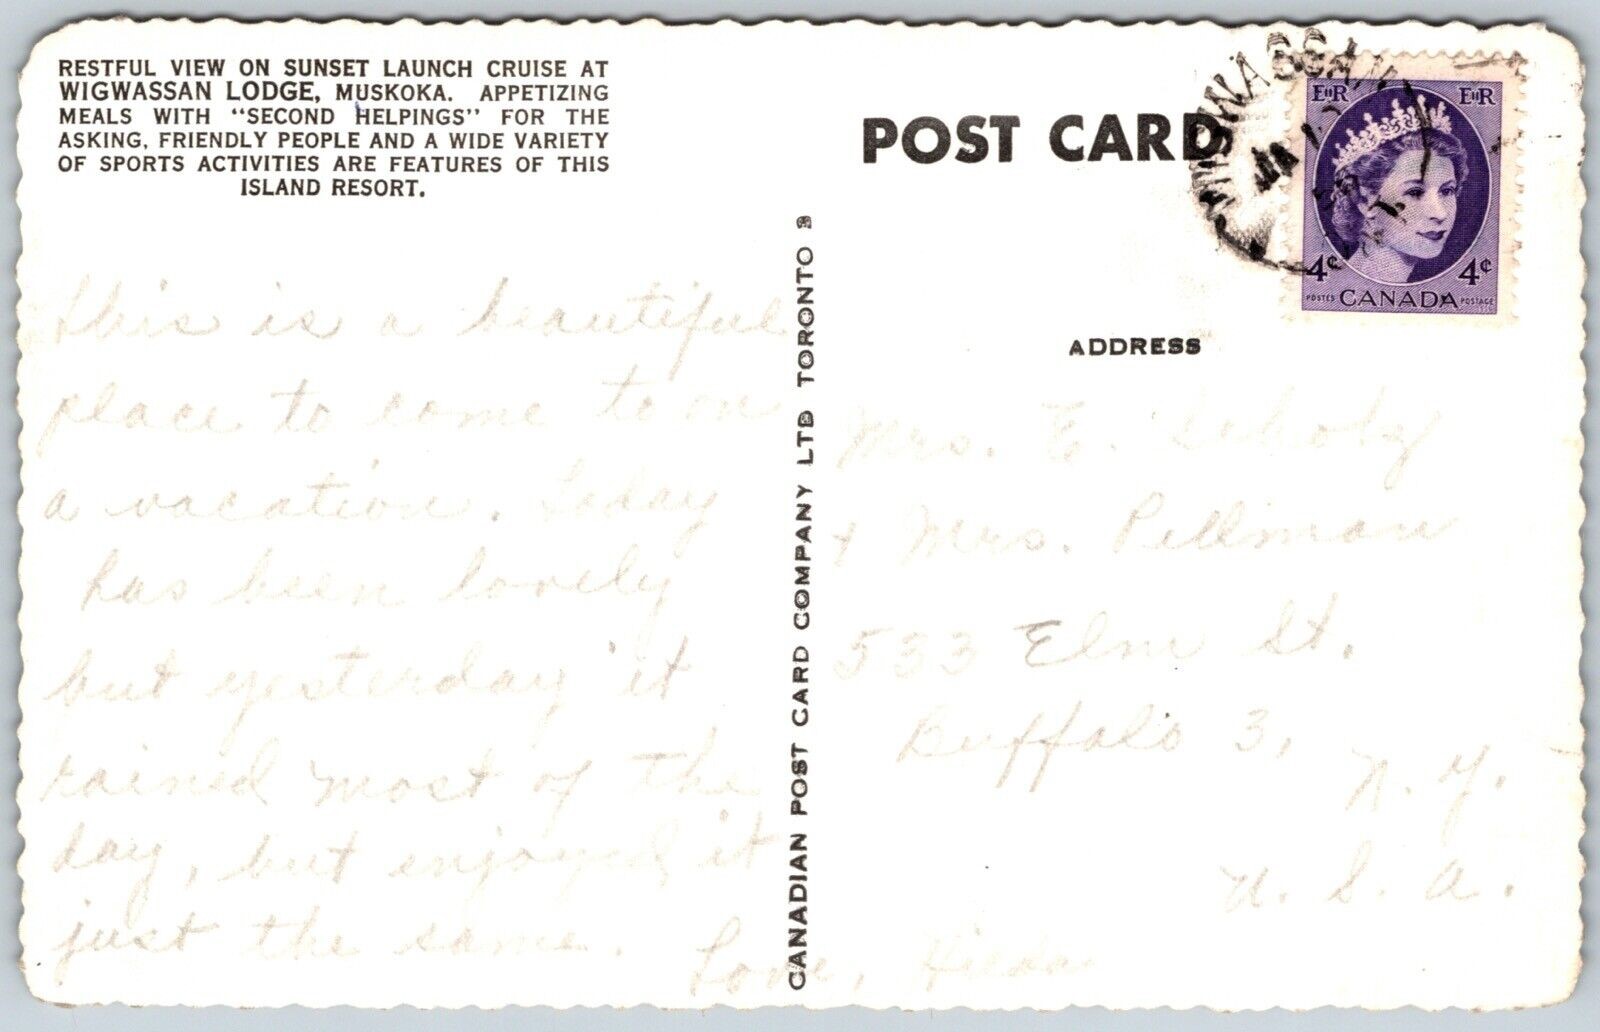 RESTFUL VIEW ON SUNSET LAUNCH CRUISE AT
WIGWASSAN LODGE, MUSKOKA. APPETIZING
MEALS WITH "SECOND HELPINGS" FOR THE
ASKING, FRIENDLY PEOPLE AND A WIDE VARIETY
OF SPORTS ACTIVITIES ARE FEATURES OF THIS
ISLAND RESORT.
This is a beautiful
place to come to on
a vacation. Today
has been lovely
but yesterday it
rained most of the
day, but enjoyed it
just the same.
Love, Hilda
CANADIAN POST CARD COMPANY LTD TORONTO 8
POST CARD
EIIR EIIR
4¢ 4¢
POSTES CANADA POSTAGE
ADDRESS
Mrs. E. Scholz
+ Mrs. Pellman
533 Elm St.
Buffalo 3,
N.Y.
U.S.A.